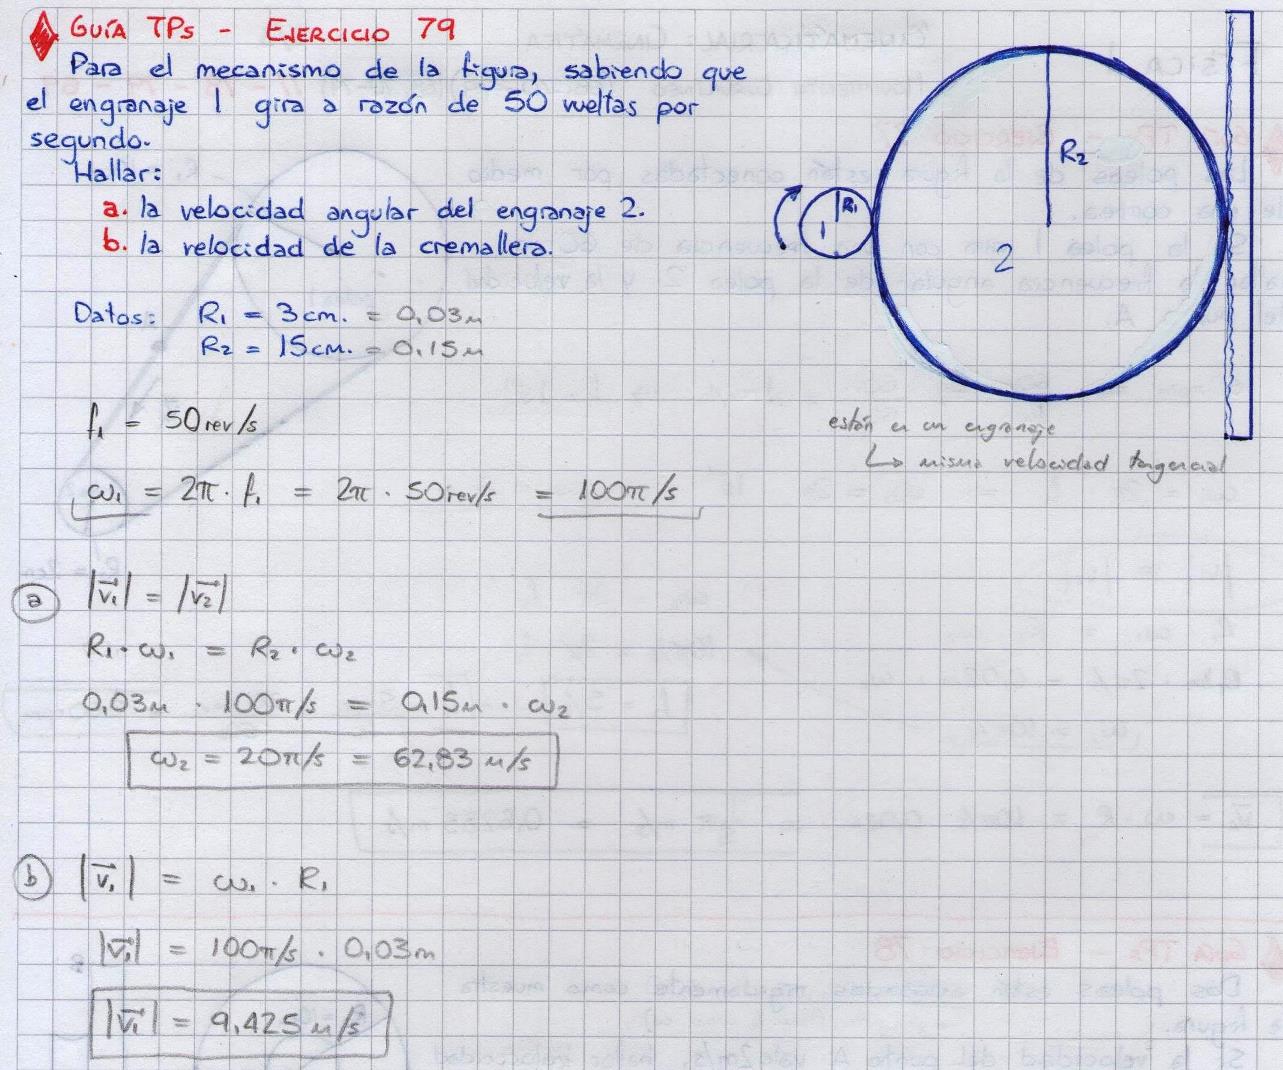 GUÍA TPs - EJERCICIO 79
Para el mecanismo de la figura, sabiendo que
el engranaje 1 gira a razón de 50 vueltas por
segundo.
Hallar:
a. la velocidad angular del engranaje 2.
b. la velocidad de la cremallera.
Datos: R₁ = 3cm. = 0,03m
R₂ = 15cm. = 0,15m
R₁
1
R₂
2
están en un engranaje
↳ misma velocidad tangencial
f₁ = 50rev/s
ω₁ = 2π · f₁ = 2π · 50rev/s = 100π/s
a |v₁| = |v₂|
R₁ · ω₁ = R₂ · ω₂
0,03m · 100π/s = 0,15m · ω₂
ω₂ = 20π/s = 62,83 m/s
b |v₁| = ω₁ · R₁
|v₁| = 100π/s · 0,03m
|v₁| = 9,425 m/s